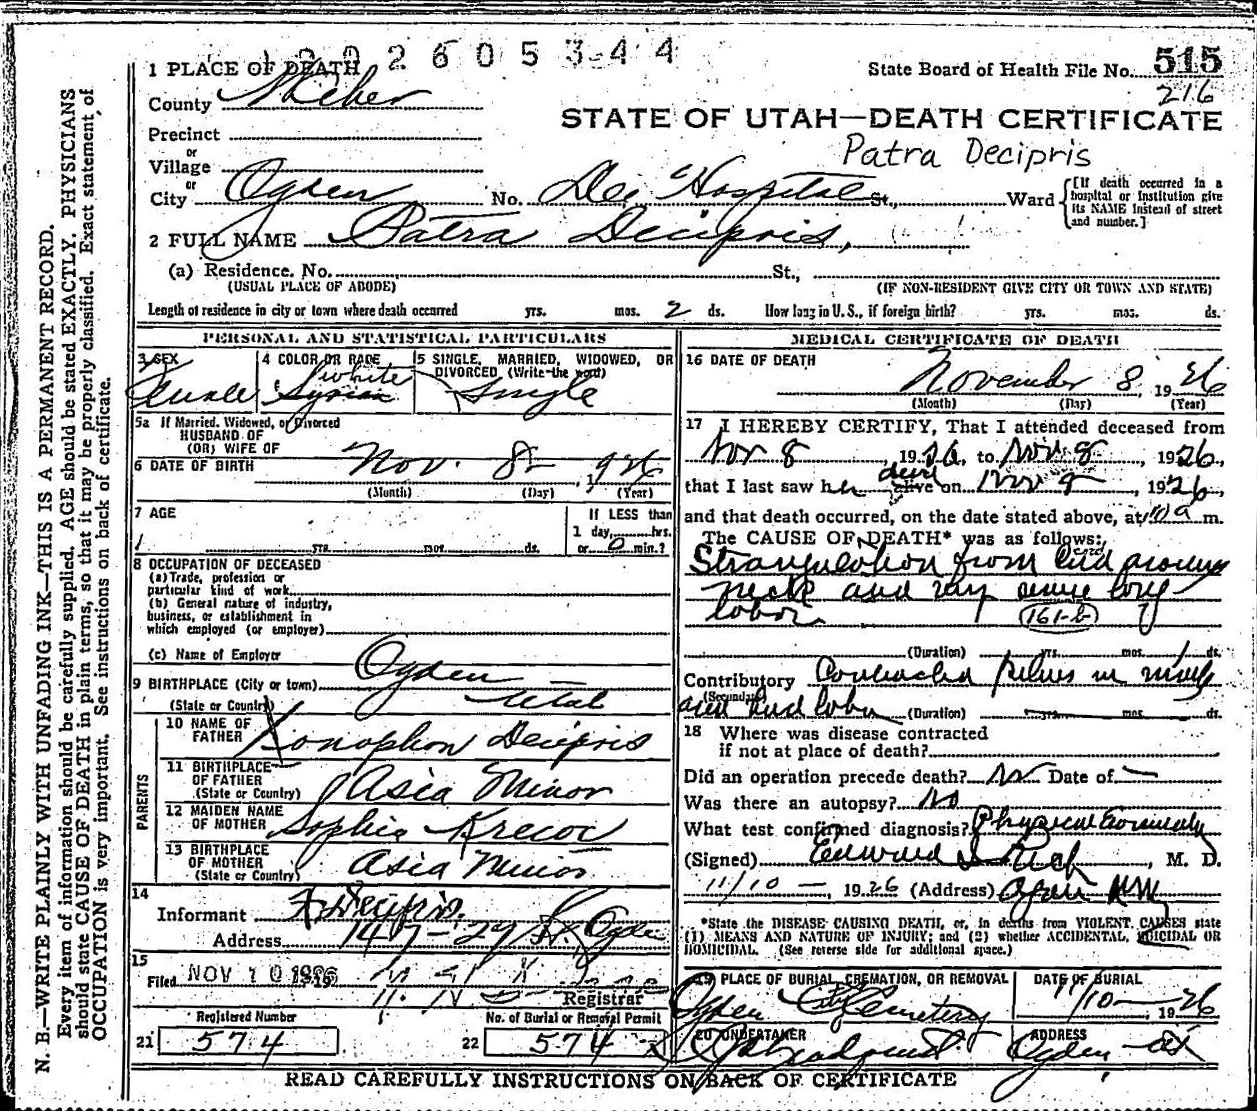 2605344
State Board of Health File No. 515
216
1 PLACE OF DEATH
County Weber
STATE OF UTAH—DEATH CERTIFICATE
Precinct
or
Village
Patra Decipris
or
City Ogden No. Dee Hospital St., Ward
[If death occurred in a hospital or institution give its NAME instead of street and number.]
2 FULL NAME Patra Decipris,
(a) Residence. No. St.,
(USUAL PLACE OF ABODE) (IF NON-RESIDENT GIVE CITY OR TOWN AND STATE)
Length of residence in city or town where death occurred yrs. mos. 2 ds. How long in U.S., if foreign birth? yrs. mos. ds.
PERSONAL AND STATISTICAL PARTICULARS
3 SEX
Female
4 COLOR OR RACE
white
Syrian
5 SINGLE, MARRIED, WIDOWED, OR DIVORCED (Write the word)
Single
5a If Married, Widowed, or Divorced
HUSBAND OF
(OR) WIFE OF
6 DATE OF BIRTH Nov. 8, 1926
(Month) (Day) (Year)
7 AGE
yrs. mos. ds.
If LESS than
1 day, hrs.
or 0 min.?
8 OCCUPATION OF DECEASED
(a) Trade, profession or
particular kind of work
(b) General nature of industry,
business, or establishment in
which employed (or employer)
(c) Name of Employer
9 BIRTHPLACE (City or town) Ogden
(State or Country) Utah
PARENTS
10 NAME OF FATHER Xonophon Decipris
11 BIRTHPLACE OF FATHER (State or Country) Asia Minor
12 MAIDEN NAME OF MOTHER Sophia Krecoc
13 BIRTHPLACE OF MOTHER (State or Country) Asia Minor
14
Informant X Decipris.
Address 147-29 St. Ogden
15
Filed NOV 10 1926
Registrar
Registered Number
21 574
No. of Burial or Removal Permit
22 574
MEDICAL CERTIFICATE OF DEATH
16 DATE OF DEATH
November 8, 1926
(Month) (Day) (Year)
17 I HEREBY CERTIFY, That I attended deceased from
Nov 8, 1926, to Nov. 8, 1926,
dead
that I last saw her alive on Nov 8, 1926,
and that death occurred, on the date stated above, at m.
The CAUSE OF DEATH* was as follows:
cord
Strangulation from cord around
neck and very severe long
labor
161-b
(Duration) yrs. mos. 1 ds.
Contributory Contracted pelvis in mother
(Secondary)
and hard labor (Duration) yrs. mos. ds.
18 Where was disease contracted
if not at place of death?
Did an operation precede death? No Date of —
Was there an autopsy? No
What test confirmed diagnosis? Physical
(Signed) Edward I Rich, M. D.
11/10 —, 1926 (Address) Ogden Utah
*State the DISEASE CAUSING DEATH, or, in deaths from VIOLENT CAUSES state
(1) MEANS AND NATURE OF INJURY; and (2) whether ACCIDENTAL, SUICIDAL OR
HOMICIDAL. (See reverse side for additional space.)
19 PLACE OF BURIAL, CREMATION, OR REMOVAL
Ogden City Cemetery
DATE OF BURIAL
11/10—, 1926
20 UNDERTAKER
ADDRESS
Ogden
READ CAREFULLY INSTRUCTIONS ON BACK OF CERTIFICATE
N. B.—WRITE PLAINLY WITH UNFADING INK—THIS IS A PERMANENT RECORD.
Every item of information should be carefully supplied. AGE should be stated EXACTLY. PHYSICIANS
should state CAUSE OF DEATH in plain terms, so that it may be properly classified. Exact statement of
OCCUPATION is very important. See instructions on back of certificate.